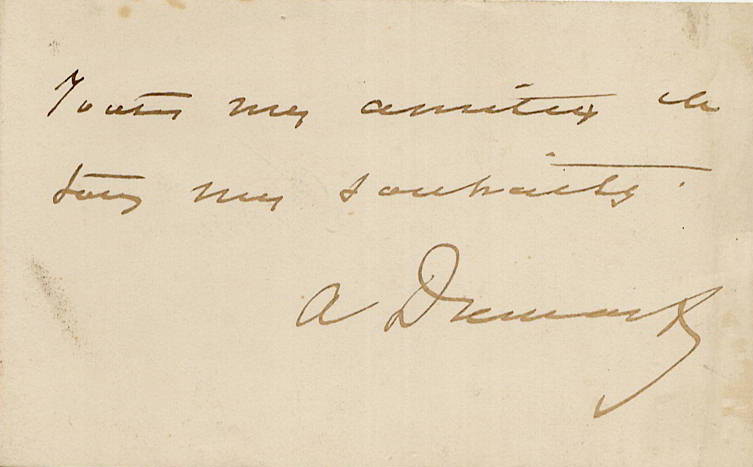 Toutes mes amitiés et
tous mes souhaits.
A Dumas f